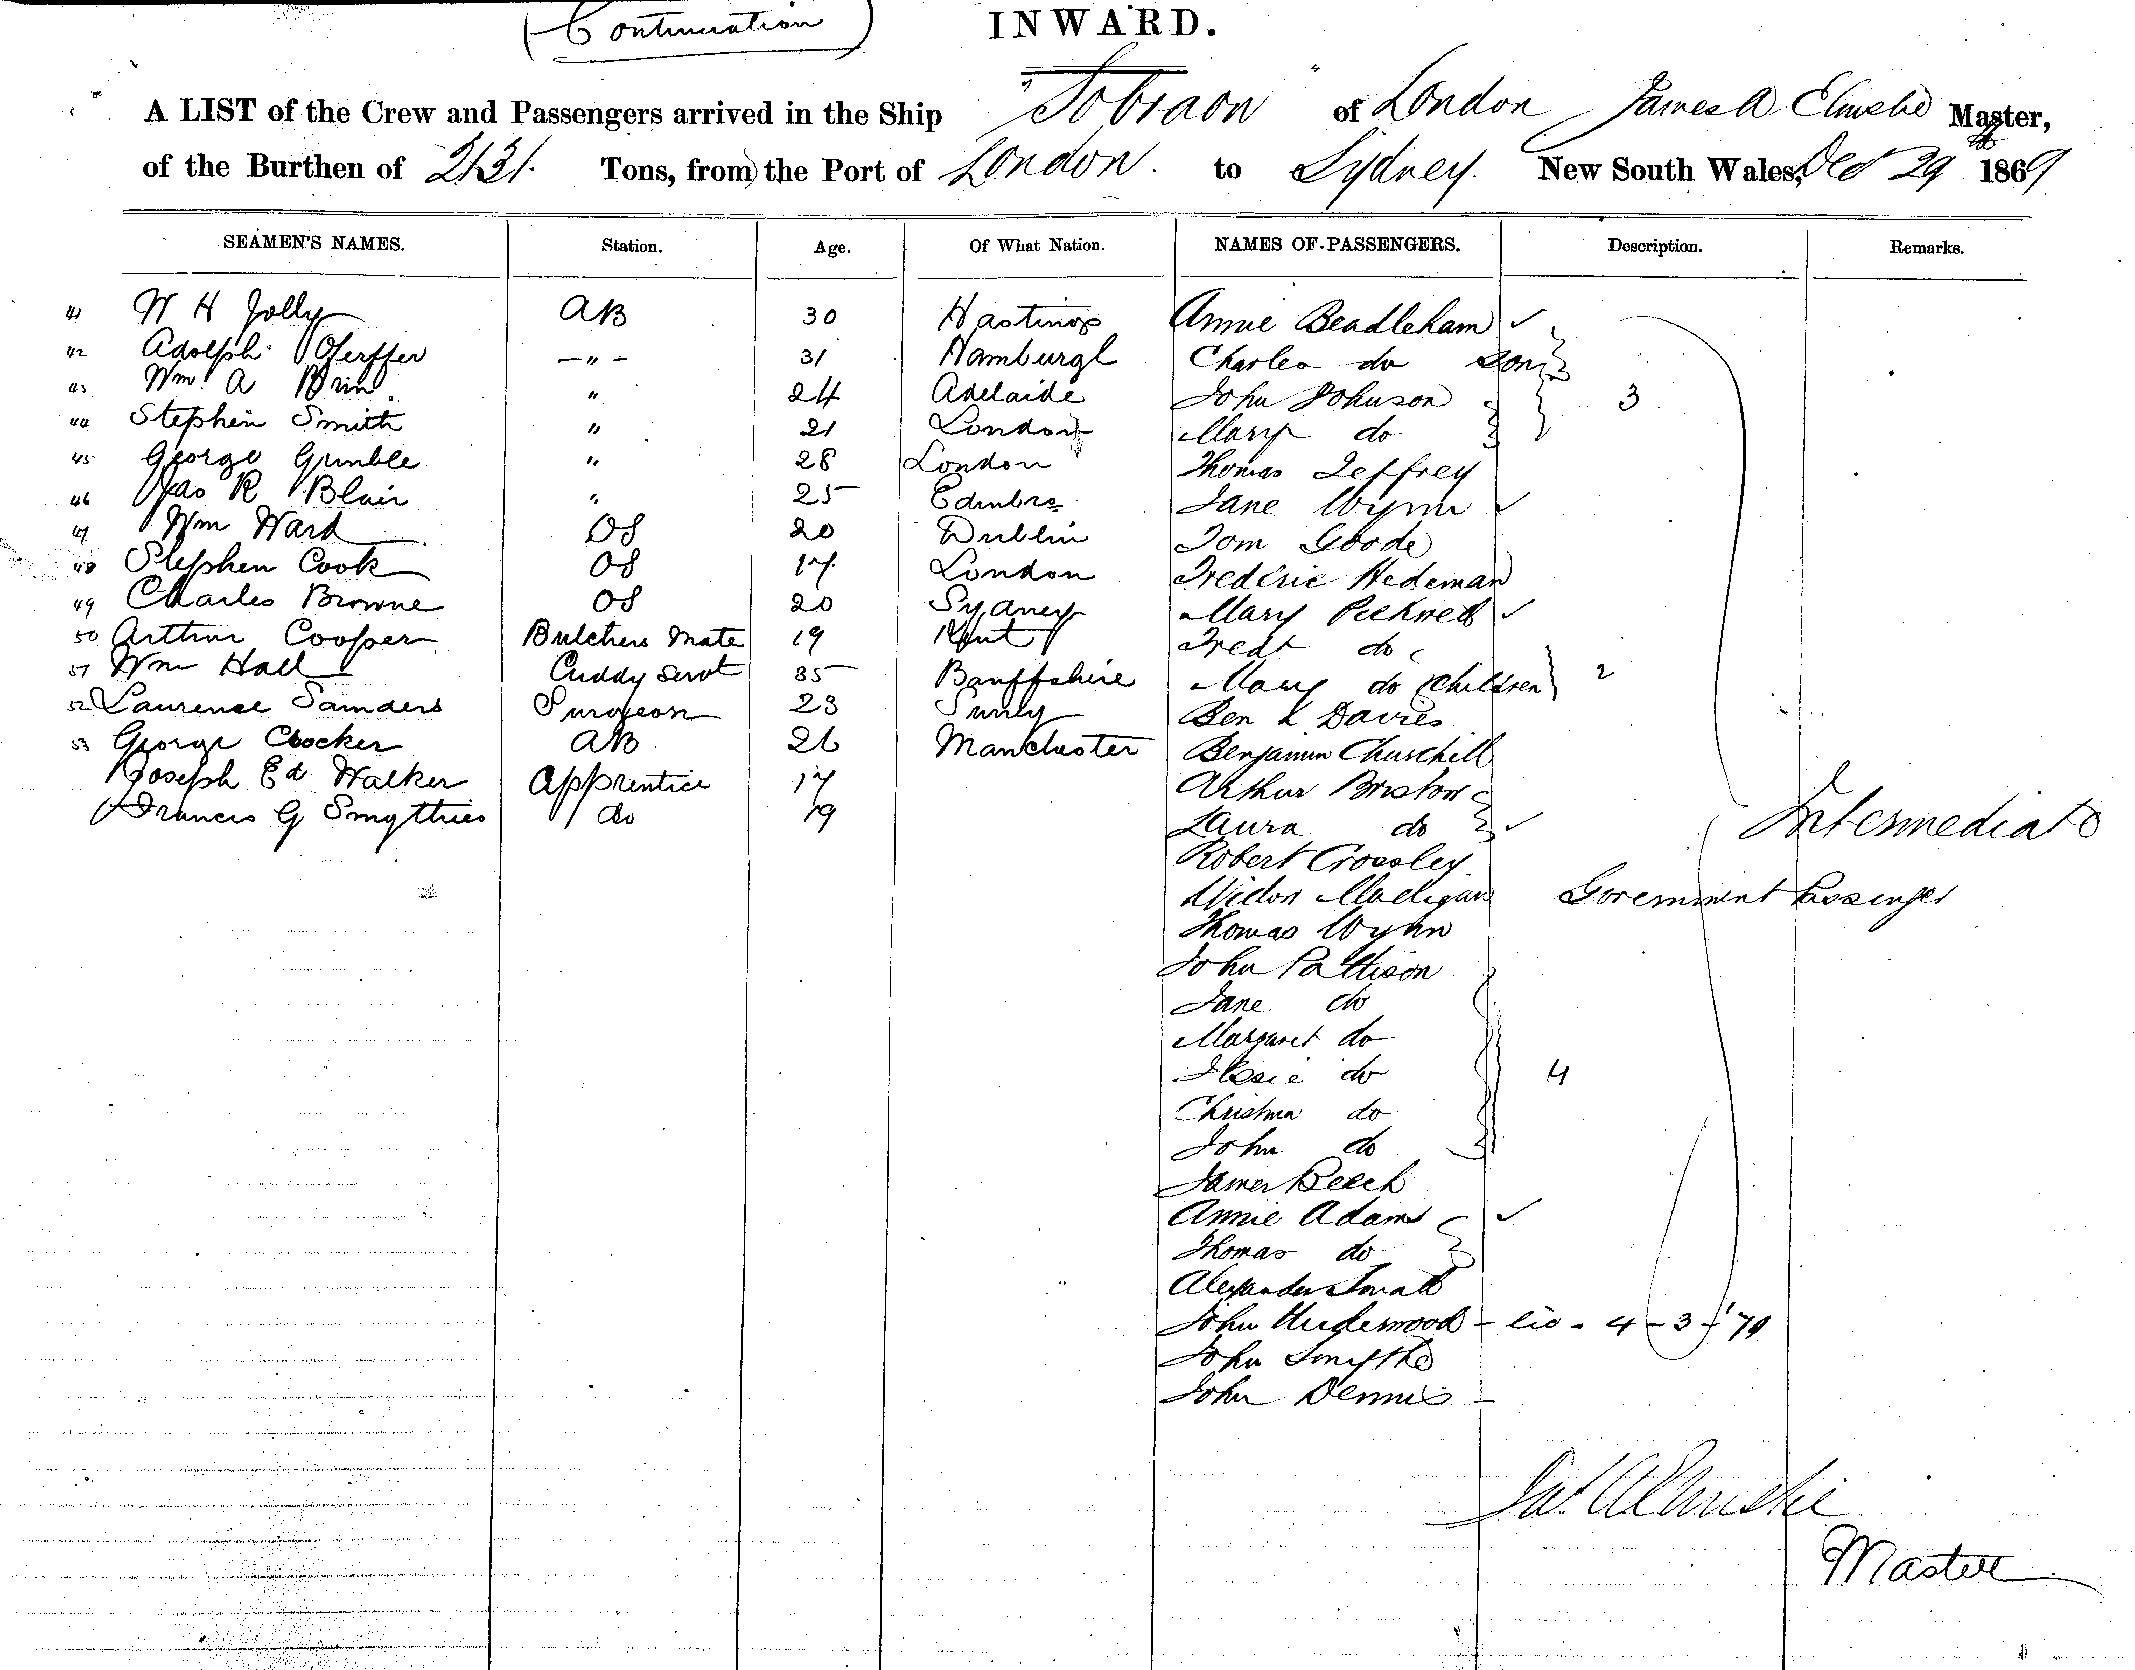 (Continuation)
INWARD.
A LIST of the Crew and Passengers arrived in the Ship "Sobraon" of London James A Elmslie Master,
of the Burthen of 2131. Tons, from the Port of London. to Sydney. New South Wales, Dec 29th 1869
SEAMEN'S NAMES. Station. Age. Of What Nation. NAMES OF PASSENGERS. Description. Remarks.
41 W H Jolly AB 30 Hastings Annie Beadleham ✓
42 Adolph 31 Hamburgh Charles do Son
43 Wm A " 24 Adelaide John Johnson 3
44 Stephen Smith " 21 London Mary do
45 George Grimble " 28 London Thomas Jeffrey
46 Jas R Blair " 25 Edinbro Jane Wynn ✓
47 Wm Ward OS 20 Dublin Tom Goode
48 Stephen Cook OS 17 London Frederic Hedeman
49 Charles Browne OS 20 Sydney Mary Picknell ✓
50 Arthur Cooper Butchers Mate 19 Kent Fredk do
51 Wm Hall Cuddy Servt 35 Banffshire Mary do children 2
52 Laurence Samders Surgeon 23 Surrey Ben L Davies
53 George Crocker AB 26 Manchester Benjamin Churchill
Joseph Ed Walker Apprentice 17 Arthur Bristow
Francis G Smythies do 19 Laura do ✓
Intermediate
Robert Crossley
Widow Madigan Government Passenger
Thomas Wynn
John Pattison
Jane do
Margaret do
do 4
Christina do
John do
James Beech
Annie Adams ✓
Thomas do
Alexander Small
John Underwood - - 4 - 3 - '70
John Smythe
John Dennis -
Jas. A Elmslie
Master